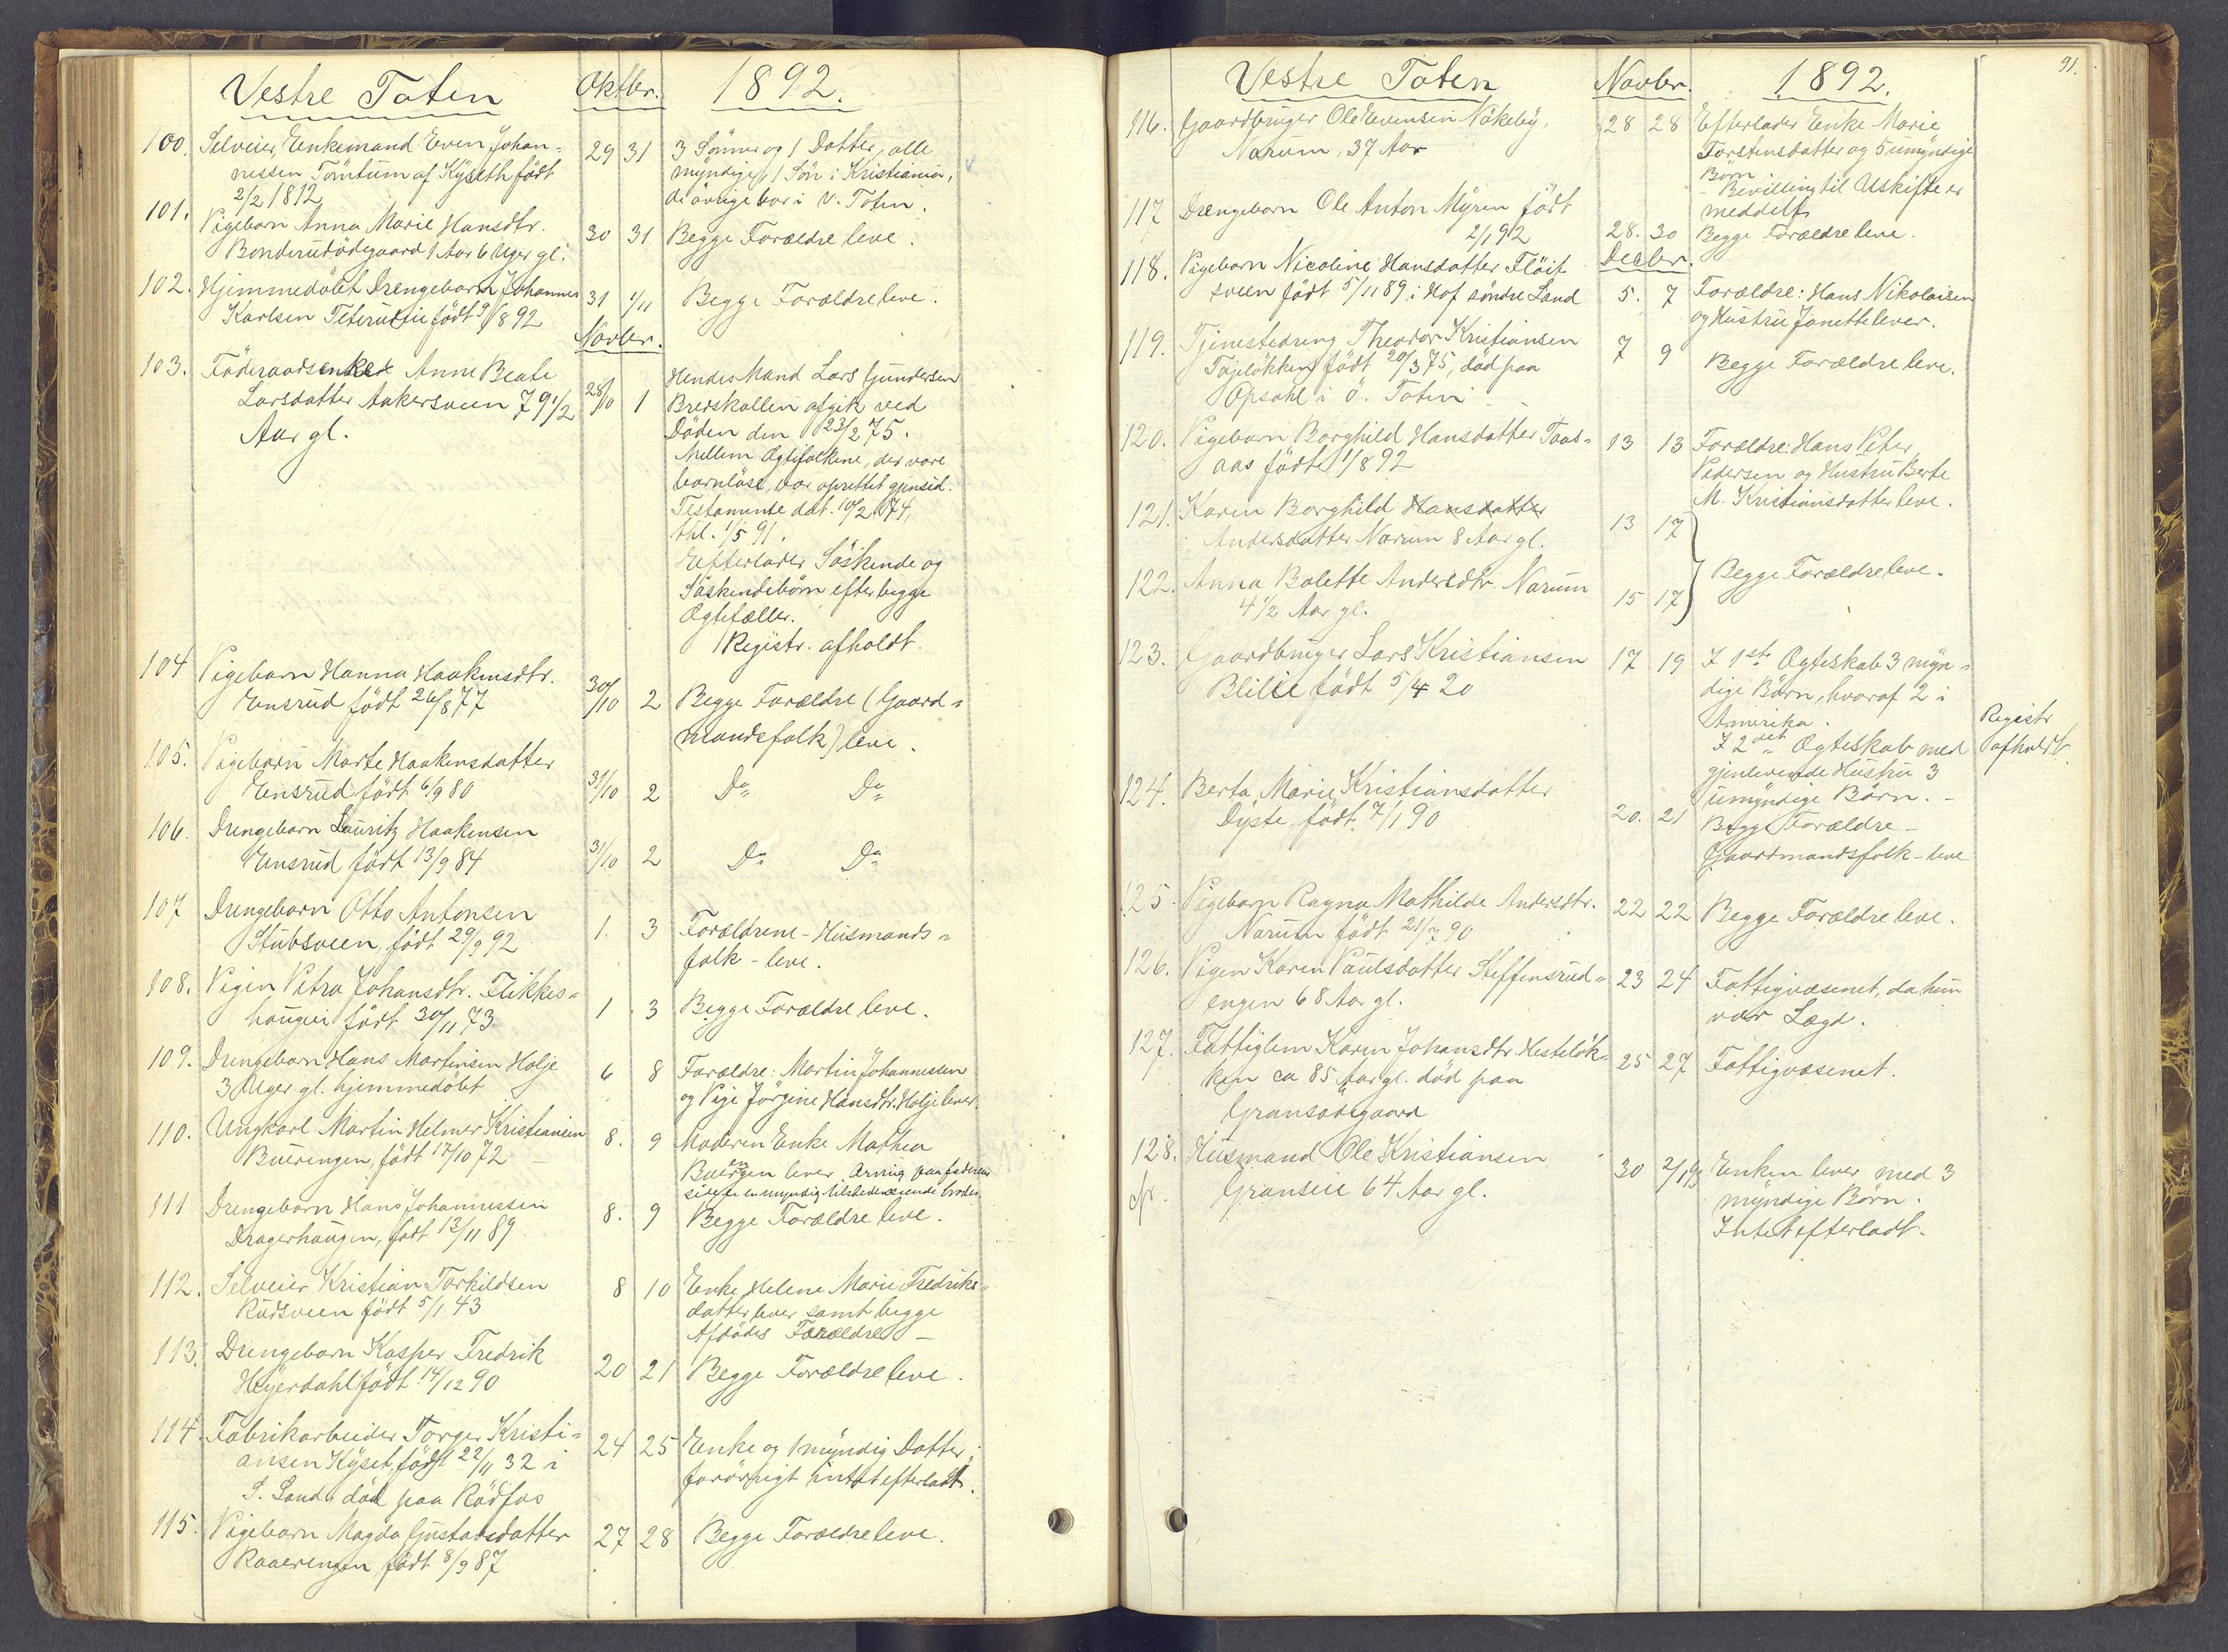 Vestre Toten Oktbr. 1892.
100. Selveier, Enkemand Even Johan- 29 31 3 Sönner og 1 Datter, alle
nessen Tömtum af Kyseth födt myndige, 1 Sön i Kristiania,
2/2 1812 de övrige bor i V. Toten.
101. Pigebarn Anna Marie Hansdtr. 30 31 Begge Forældre leve.
Bonderudödegaard 1 Aar 6 Uger gl.
102. Hjemmedöbt Drengebarn Johannes 31 1/11 Begge Forældre leve.
Karlsen Teterudeie födt 9/8 92
Novbr.
103. Föderaadsenke Anne Beate 28/10 1 Hendes Mand Lars Gundersen
Larsdatter Aakersveen 79 1/2 Breiskallen afgik ved
Aar gl. Döden den 23/2 75.
Mellem Ægtefolkene, der vare
barnlöse, var oprettet gjensid.
Testamente dat. 10/2 74,
thl. 1/5 91.
Efterlader Söskende og
Söskendebörn efter begge
Ægtefæller.
Registr. afholdt.
104 Pigebarn Hanna Haakensdtr. 30/10 2 Begge Forældre (Gaard-
Ensrud födt 26/8 77 mandsfolk) leve.
105. Pigebarn Marte Haakensdatter 31/10 2 Do Do
Ensrud födt 6/9 80
106. Drengebarn Lauritz Haakensen 31/10 2 Do Do
Ensrud födt 13/9 84
107 Drengebarn Otto Antonsen 1. 3 Forældrene - Husmands-
Stubsveen, födt 29/9 92 folk - leve.
108. Pigen Petra Johansdtr. Flikkes- 1 3 Begge Forældre leve.
haugen födt 30/11 73
109. Drengebarn Hans Martinsen Holje 6 8 Forældre: Martin Johannessen
3 Uger gl. hjemmedöbt og Pige Jörgine Hansdtr. Holje lever.
110. Ungkarl Martin Helmer Kristiansen 8. 9 Moderen Enke Mathea
Bueringen, födt 17/10 72 lever Arving paa faderens
side er en myndig tilstedeværende broder.
111 Drengebarn Hans Johannessen 8. 9 Begge Forældre leve.
Dragerhaugen, födt 13/11 89
112. Selveier Kristian Torkildsen 8 10 Enke Helene Marie Fredriks-
Rudsveen födt 5/1 43 datter lever samt begge
Afdödes Forældre -
113. Drengebarn Kasper Fredrik 20 21 Begge Forældre leve.
Heyerdahl födt 14/12 90
114. Fabrikarbeider Torger Kristi- 24 25 Enke og 1 myndig Datter;
ansen Kyset, födt 22/11 32 i forövrigt intet efterladt.
S. Land, död paa Rödfos
115. Pigebarn Magda Gustavsdatter 27 28 Begge Forældre leve.
Raaerengen födt 8/9 87
91.
Vestre Toten Novbr. 1892.
116. Gaardbruger Ole Evensen Nökleby, 28 28 Efterlader Enke Marie
Narum, 37 Aar Torstensdatter og 5 umyndige
Börn
- Bevilling til Uskifte er
meddelt
117 Drengebarn Ole Anton Myren födt
2/1 92 28. 30 Begge Forældre leve.
Decbr.
118. Pigebarn Nicoline Hansdatter Flöit- 5. 7 Forældre: Hans Nikolaisen
sveen födt 5/11 89 i Hof söndre Land og Hustru Janette lever.
119. Tjenestedreng Theodor Kristiansen 7 9 Begge Forældre leve.
födt 20/3 75, död paa
Opsahl i Ö. Toten
120. Pigebarn Borghild Hansdatter Taas- 13 13 Forældre: Hans Peter
aas födt 11/8 92 Pedersen og Hustru Berte
M. Kristiansdatter leve.
121. Karen Borghild Hansdatter 13 17
Andersdatter Narum 8 Aar gl.
Begge Forældre leve.
122. Anna Bolette Andersdtr. Narum 15 17
4 1/2 Aar gl.
123. Gaardbruger Lars Kristiansen 17 19 I 1ste Ægteskab 3 myn-
Blilie födt 5/4 20 dige Börn, hvoraf 2 i
Amerika.
I 2det Ægteskab med
gjenlevende Hustru 3
umyndige Börn. -
Registr
afholdt
124. Berta Marie Kristiansdatter 20. 21 Begge Forældre -
Dyste, födt 7/1 90 Gaardmandsfolk - leve
125. Pigebarn Ragna Mathilde Andersdtr. 22 22 Begge Forældre leve.
Narum födt 21/7 90
126. Pigen Karen Paulsdatter Steffensrud- 23 24 Fattigvæsenet, da hun
engen 68 Aar gl. var Lægd.
127. Fattiglem Karen Johansdtr Hesteløk- 25 27 Fattigvæsenet.
ken ca 85 Aar gl. död paa
Gransödegaard
128. Husmand Ole Kristiansen 30 2/1 93 Enken lever med 3
Graneie 64 Aar gl. myndige Börn.
Intet efterladt.